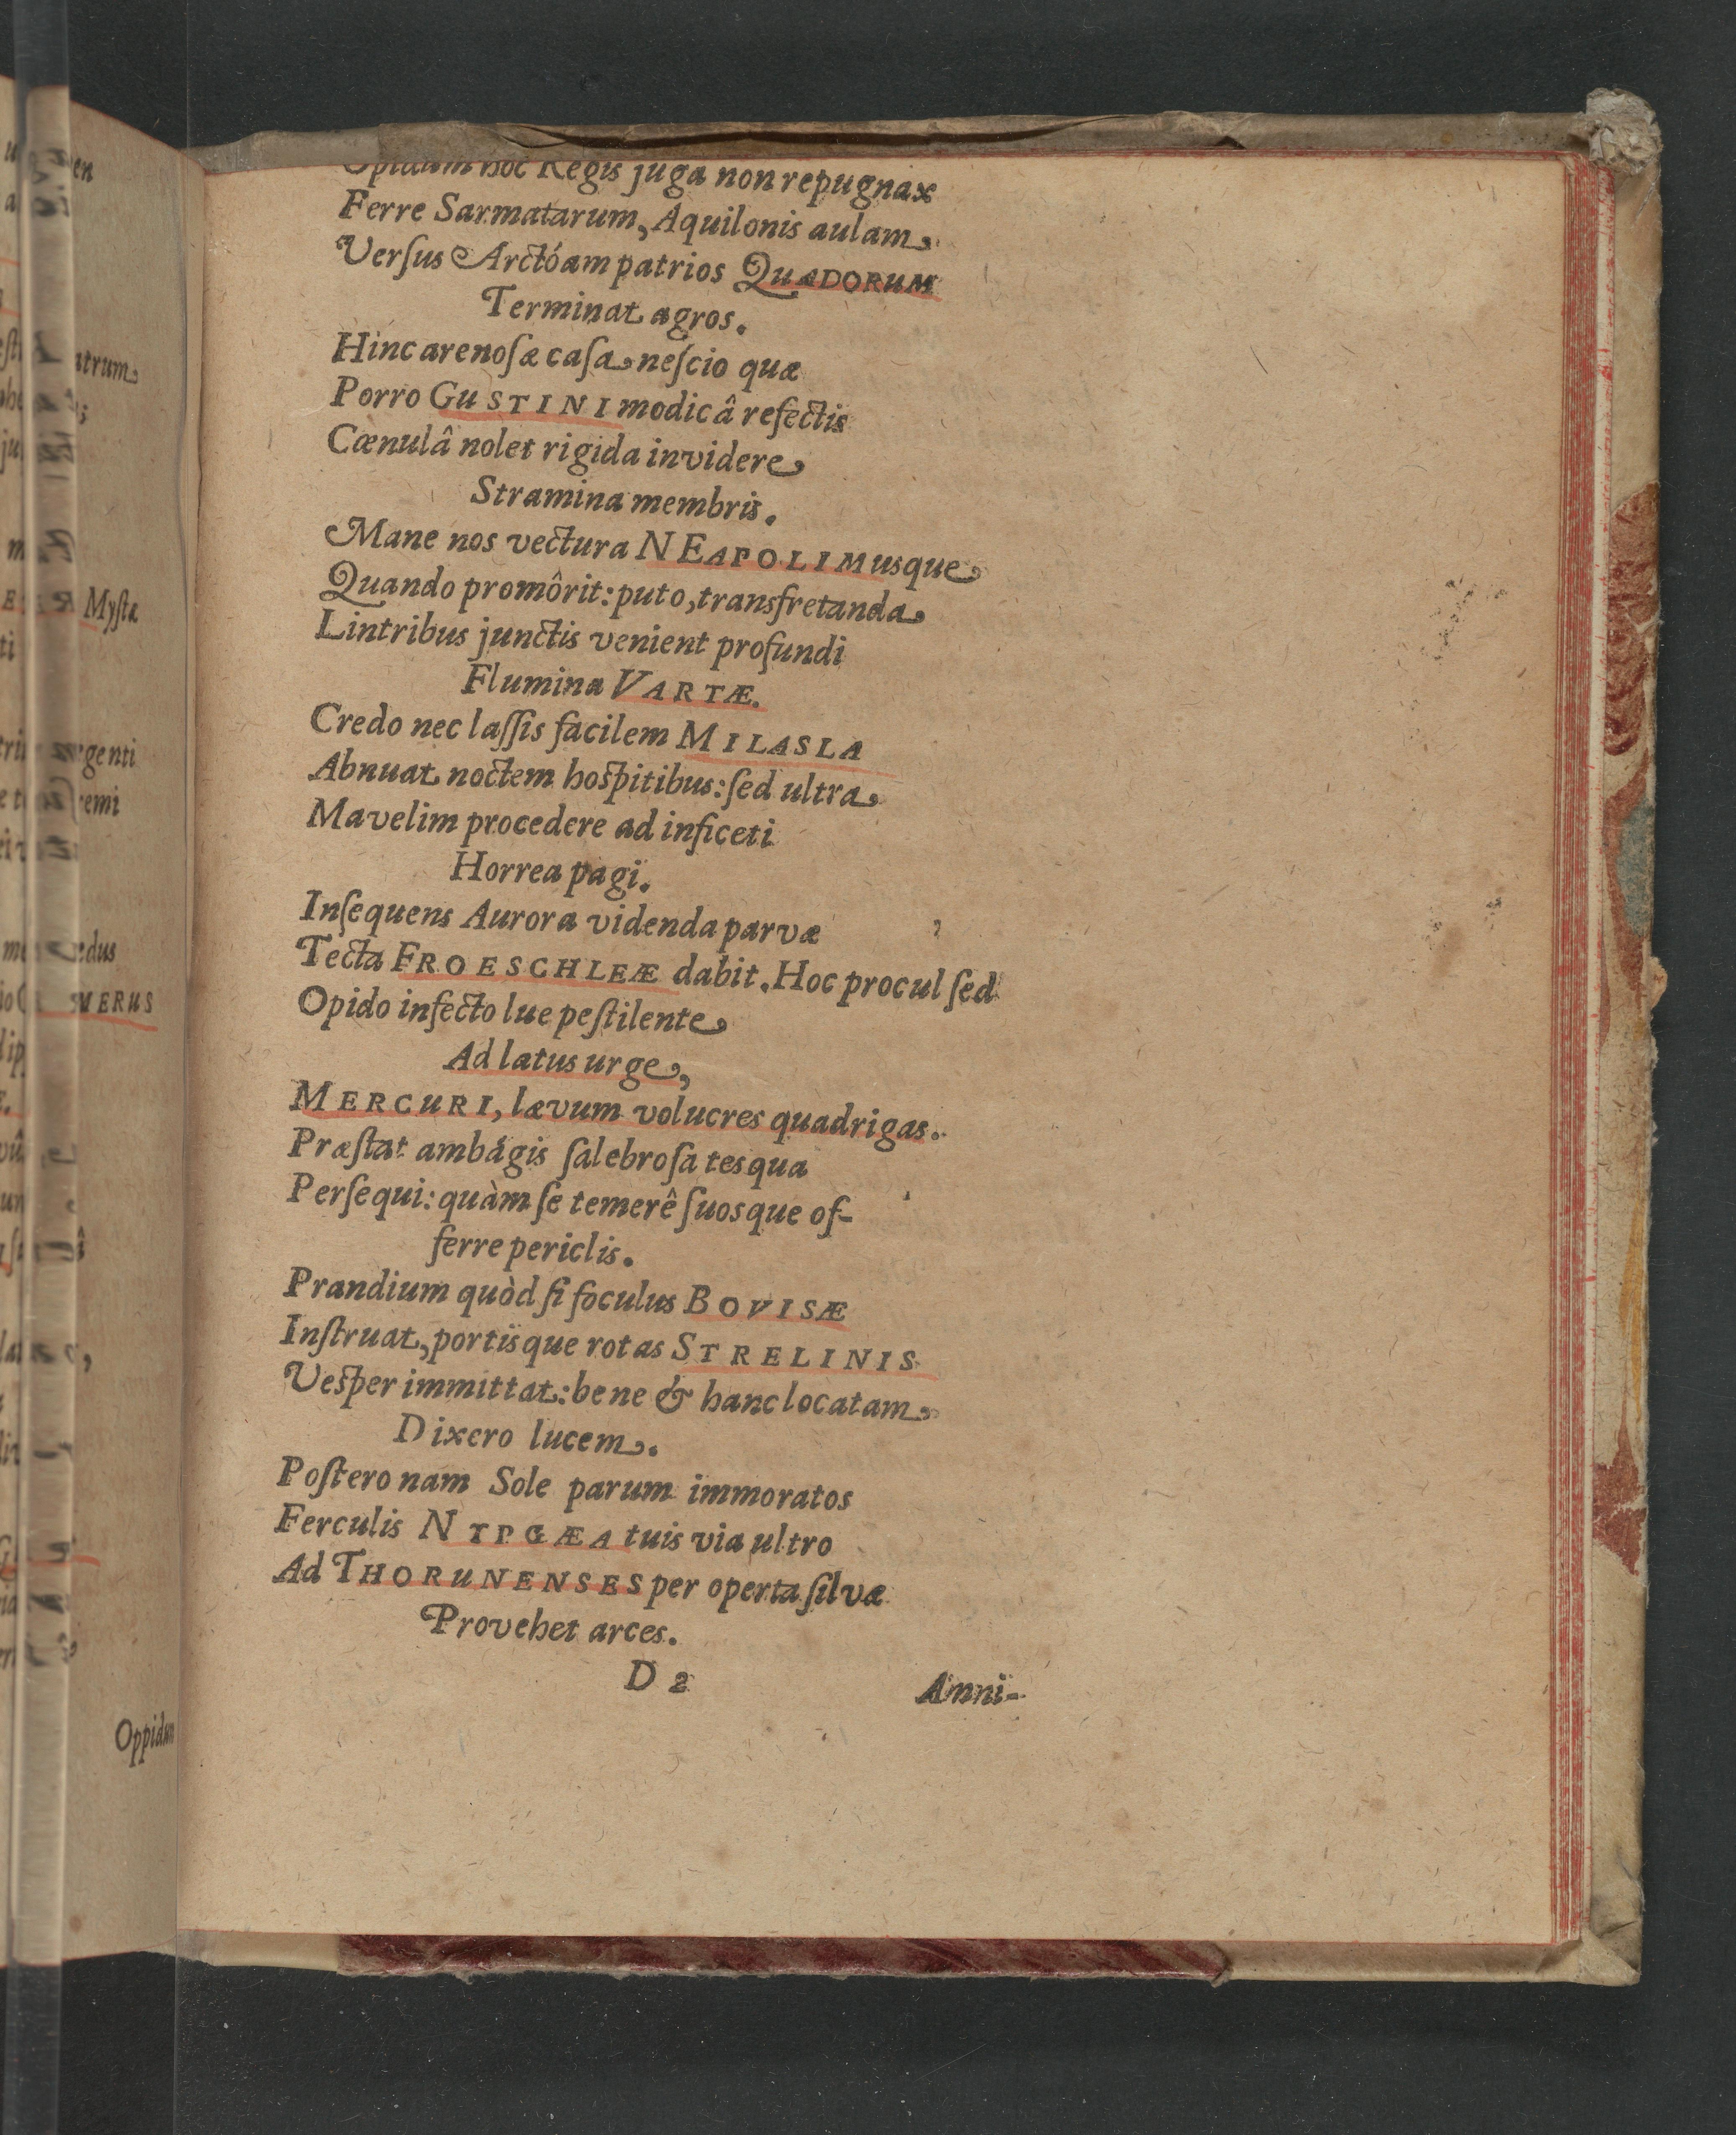 Opidum hoc Regis juga non repugnax
Ferre Sarmatarum, Aquilonis aulam
Verſus Arctóam patrios QUADORUM
Terminat agros.
Hinc arenoſæ caſa neſcio quæ
Porro GUSTINI modicâ refectis
Cœnulâ nolet rigida invidere
Stramina membris.
Mane nos vectura NEAPOLIM usque
Quando promôrit: puto, transfretanda
Lintribus junctis venient profundi
Flumina VARTÆ.
Credo nec laſſis facilem MILASLA
Abnuat noctem hoſpitibus: ſed ultra
Mavelim procedere ad inficeti
Horrea pagi.
Inſequens Aurora videnda parvæ
Tecta FROESCHLEÆ dabit. Hoc procul ſed
Opido infecto lue peſtilente
Ad latus urge,
MERCURI, lævum volucres quadrigas.
Præſtat ambágis ſalebroſa tesqua
Perſequi: quàm ſe temerê ſuosque of-
ferre periclis.
Prandium quòd ſi foculus BOVISÆ
Inſtruat, portisque rotas STRELINIS
Veſper immittat: bene & hanc locatam
Dixero lucem.
Poſtero nam Sole parum immoratos
Ferculis NTPGÆA tuis via ultro
Ad THORUNENSES per operta ſilvæ
Provehet arces.
D 2
Amni-
en
atrum
Myſtæ
genti
remi
edus
MERUS
Oppidum